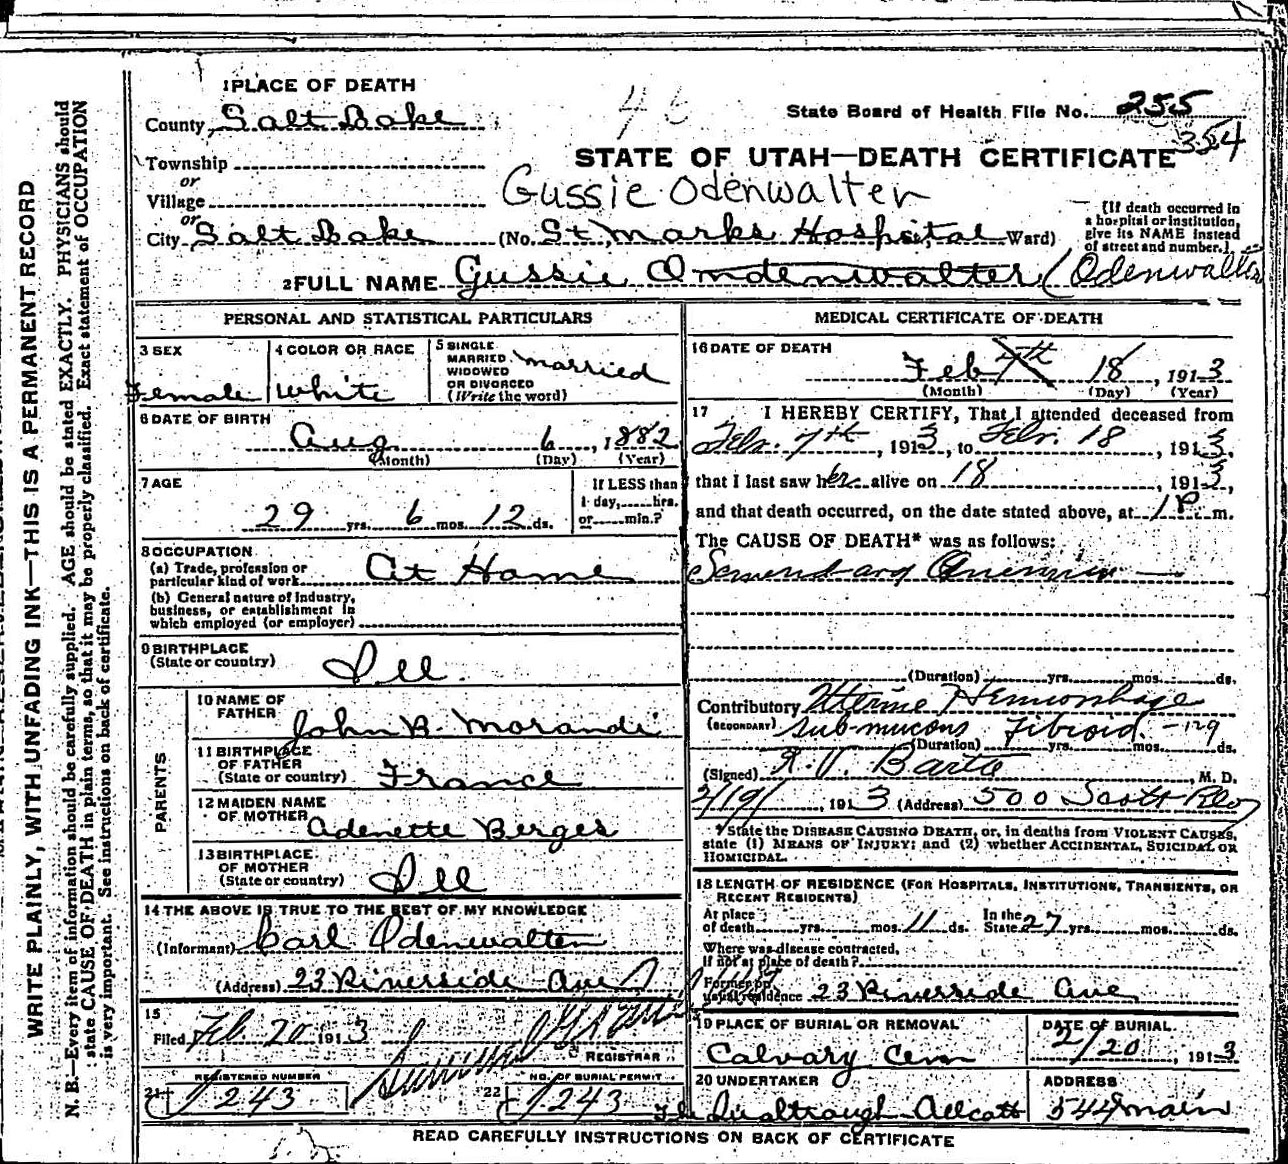 1 PLACE OF DEATH
County Salt Lake
Township
or
Village
or
City Salt Lake (No. St. Marks Hospital Ward)
46
State Board of Health File No. 255
354
STATE OF UTAH—DEATH CERTIFICATE
Gussie Odenwalter
(If death occurred in
a hospital or institution,
give its NAME instead
of street and number.)
2 FULL NAME Gussie Omdenwalter (Odenwalter
PERSONAL AND STATISTICAL PARTICULARS
3 SEX
Female
4 COLOR OR RACE
White
5 SINGLE
MARRIED
WIDOWED
OR DIVORCED
(Write the word)
married
6 DATE OF BIRTH
Aug 6, 1882
(Month) (Day) (Year)
7 AGE
29 yrs. 6 mos. 12 ds.
If LESS than
1 day, hrs.
or min.?
8 OCCUPATION
(a) Trade, profession or
particular kind of work At Home
(b) General nature of Industry,
business, or establishment in
which employed (or employer)
9 BIRTHPLACE
(State or country) Ill.
PARENTS
10 NAME OF
FATHER John B. Morandi
11 BIRTHPLACE
OF FATHER
(State or country) France
12 MAIDEN NAME
OF MOTHER Adenette Berges
13 BIRTHPLACE
OF MOTHER
(State or country) Ill
14 THE ABOVE IS TRUE TO THE BEST OF MY KNOWLEDGE
(Informant) Carl Odenwalter
(Address) 23 Riverside Ave
15
Filed Feb. 20 1913
REGISTRAR
REGISTERED NUMBER
21 243
NO. OF BURIAL PERMIT
22 243
MEDICAL CERTIFICATE OF DEATH
16 DATE OF DEATH
Feb 7th 18, 1913
(Month) (Day) (Year)
17 I HEREBY CERTIFY, That I attended deceased from
Febr. 7th, 1913, to Febr. 18, 1913,
that I last saw her alive on 18, 1913,
and that death occurred, on the date stated above, at 1 P. m.
The CAUSE OF DEATH* was as follows:
(Duration) yrs. mos. ds.
Contributory Uterine Hemorrhage
(SECONDARY) sub-mucous Fibroid. -129
(Duration) yrs. mos. ds.
(Signed) R. V. Barta, M. D.
2/19/, 1913 (Address) 500 Scott
*State the DISEASE CAUSING DEATH, or, in deaths from VIOLENT CAUSES,
state (1) MEANS OF INJURY; and (2) whether ACCIDENTAL, SUICIDAL OR
HOMICIDAL.
18 LENGTH OF RESIDENCE (FOR HOSPITALS, INSTITUTIONS, TRANSIENTS, OR
RECENT RESIDENTS)
At place
of death yrs. mos. 11 ds. In the
State 27 yrs. mos. ds.
Where was disease contracted,
If not at place of death?
Former or
usual residence 23 Riverside Ave
19 PLACE OF BURIAL OR REMOVAL
Calvary Cem
DATE OF BURIAL
2/20, 1913
20 UNDERTAKER
ADDRESS
544 Main
READ CAREFULLY INSTRUCTIONS ON BACK OF CERTIFICATE
WRITE PLAINLY, WITH UNFADING INK—THIS IS A PERMANENT RECORD
N. B.—Every item of information should be carefully supplied. AGE should be stated EXACTLY. PHYSICIANS should
state CAUSE OF DEATH in plain terms, so that it may be properly classified. Exact statement of OCCUPATION
is very important. See instructions on back of certificate.